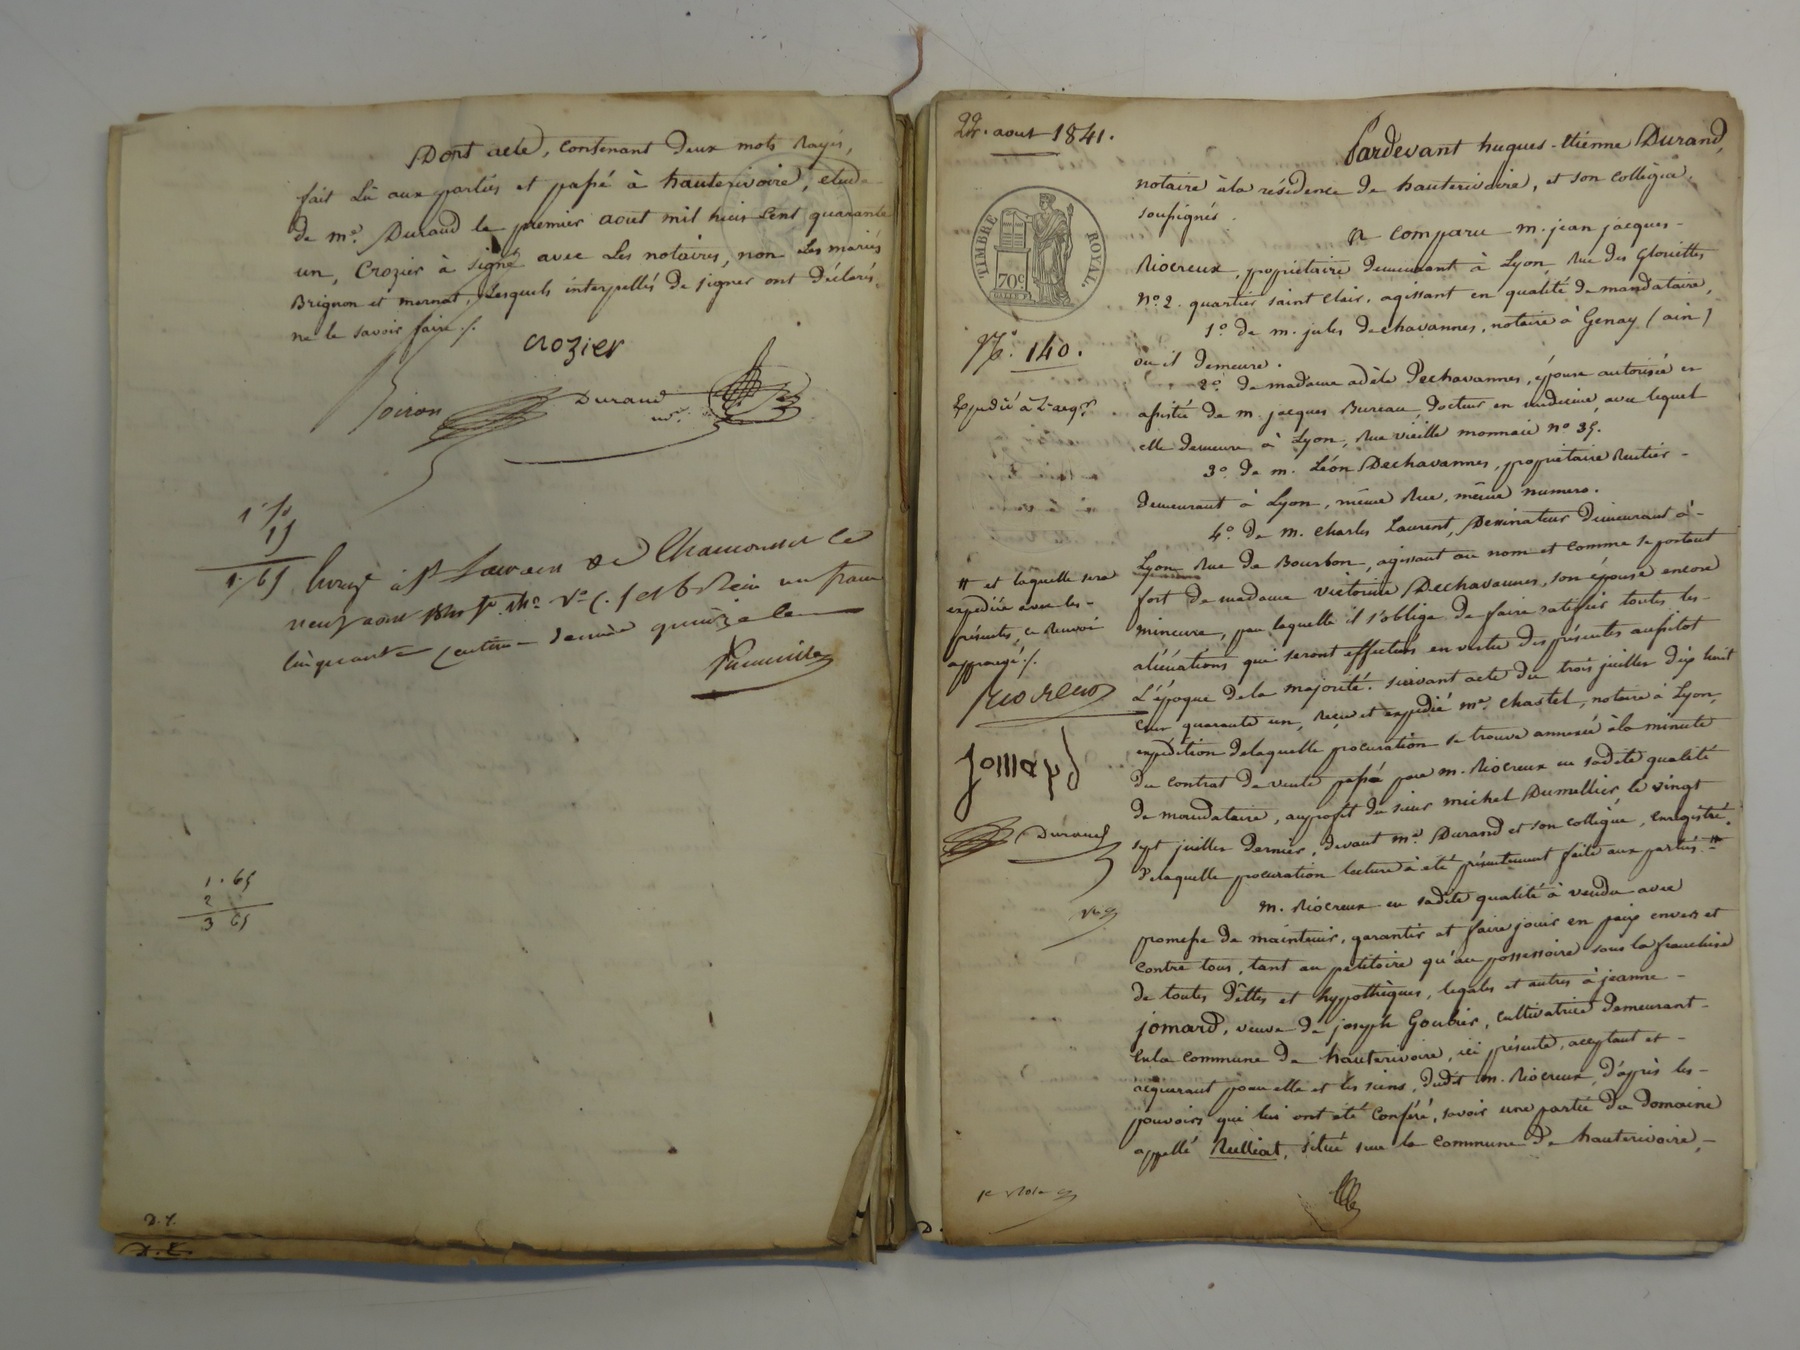 Dont acte, contenant deux mots rayés,
fait lu aux parties et passé à hauterivoire, etude
de me. Durand le premier aout mil huit cent quarante
un, Crozier à signé avec les notaires, non les mariés
Brignon et mernat, lesquels interpellés de signer ont déclarés,
ne le savoir faire ./.
crozier
Durand
1 50
15
1. 65
St Laurent de Chamousset le
neuf aout un franc
cinquante centimes quinze
1. 65
2
3 65
D. Y.
D. E.
aout 1841.
Pardevant hugues-Etienne Durand,
notaire à la résidence de hauterivoire, et son collègue,
soussignés.
a comparu m. jean jacques -
Riocreux, propriétaire demeurant à Lyon, rue des Gloriettes
No. 2. quartier saint Clair, agissant en qualité de mandataire,
1o. de m. jules dechavannes, notaire à Genay (ain)
ou il demeure.
2o. de madame adèle Dechavannes, épouse autorisée et
assistée de m. jacques Bureau, docteur en médecine, avec lequel
elle demeure à Lyon, rue vieille monnaie no 35.
3o. de m. Léon Dechavannes, propriétaire rentier -
demeurant à Lyon, même rue, même numero.
4o. de m. Charles Laurent, Dessinateur demeurant à -
Lyon rue de Bourbon, agissant au nom et comme se portant
fort de madame victorine Dechavannes, son épouse encore
mineure, par laquelle il s'oblige de faire ratifier toutes les -
aliénations qui seront effectuées en vertu des présentes aussitot
l'époque de la majorité. suivant acte du trois juillet dix huit
cent quarante un, reçu et expédié me. chastel, notaire à Lyon,
expédition delaquelle procuration se trouve annexée à la minute
du contrat de vente passé par m. Riocreux en sadite qualité
de mandataire, au profit du sieur michel Dumellier le vingt
sept juillet dernier, devant me. Durand et son collègue, enregistré.
delaquelle procuration lecture à été présentement faite aux parties. #
m. Riocreux en sadite qualité à vendu avec
promesse de maintenir, garantir et faire jouir en paix envers et
contre tous, tant au petitoire qu'au possessoire sous la franchise
de toutes dettes et hypothèques, legales et autres à jeanne -
jomard, veuve de joseph Goubier, cultivatrice demeurant -
en la commune de hauterivoire, ici présente, acceptant et -
acquérant pour elle et les siens, dudit m. Riocreux, d'après les -
pouvoirs qui lui ont été conféré, savoir une partie du domaine
appellé Rulliat, situé sur la commune de hauterivoire, -
TIMBRE ROYAL
70c
No. 140.
Expédié à l'acqr.
# et laquelle sera
expédiée avec les -
présentes, ce renvoi
approuvé ./.
Riocreux
Jomard
Durand